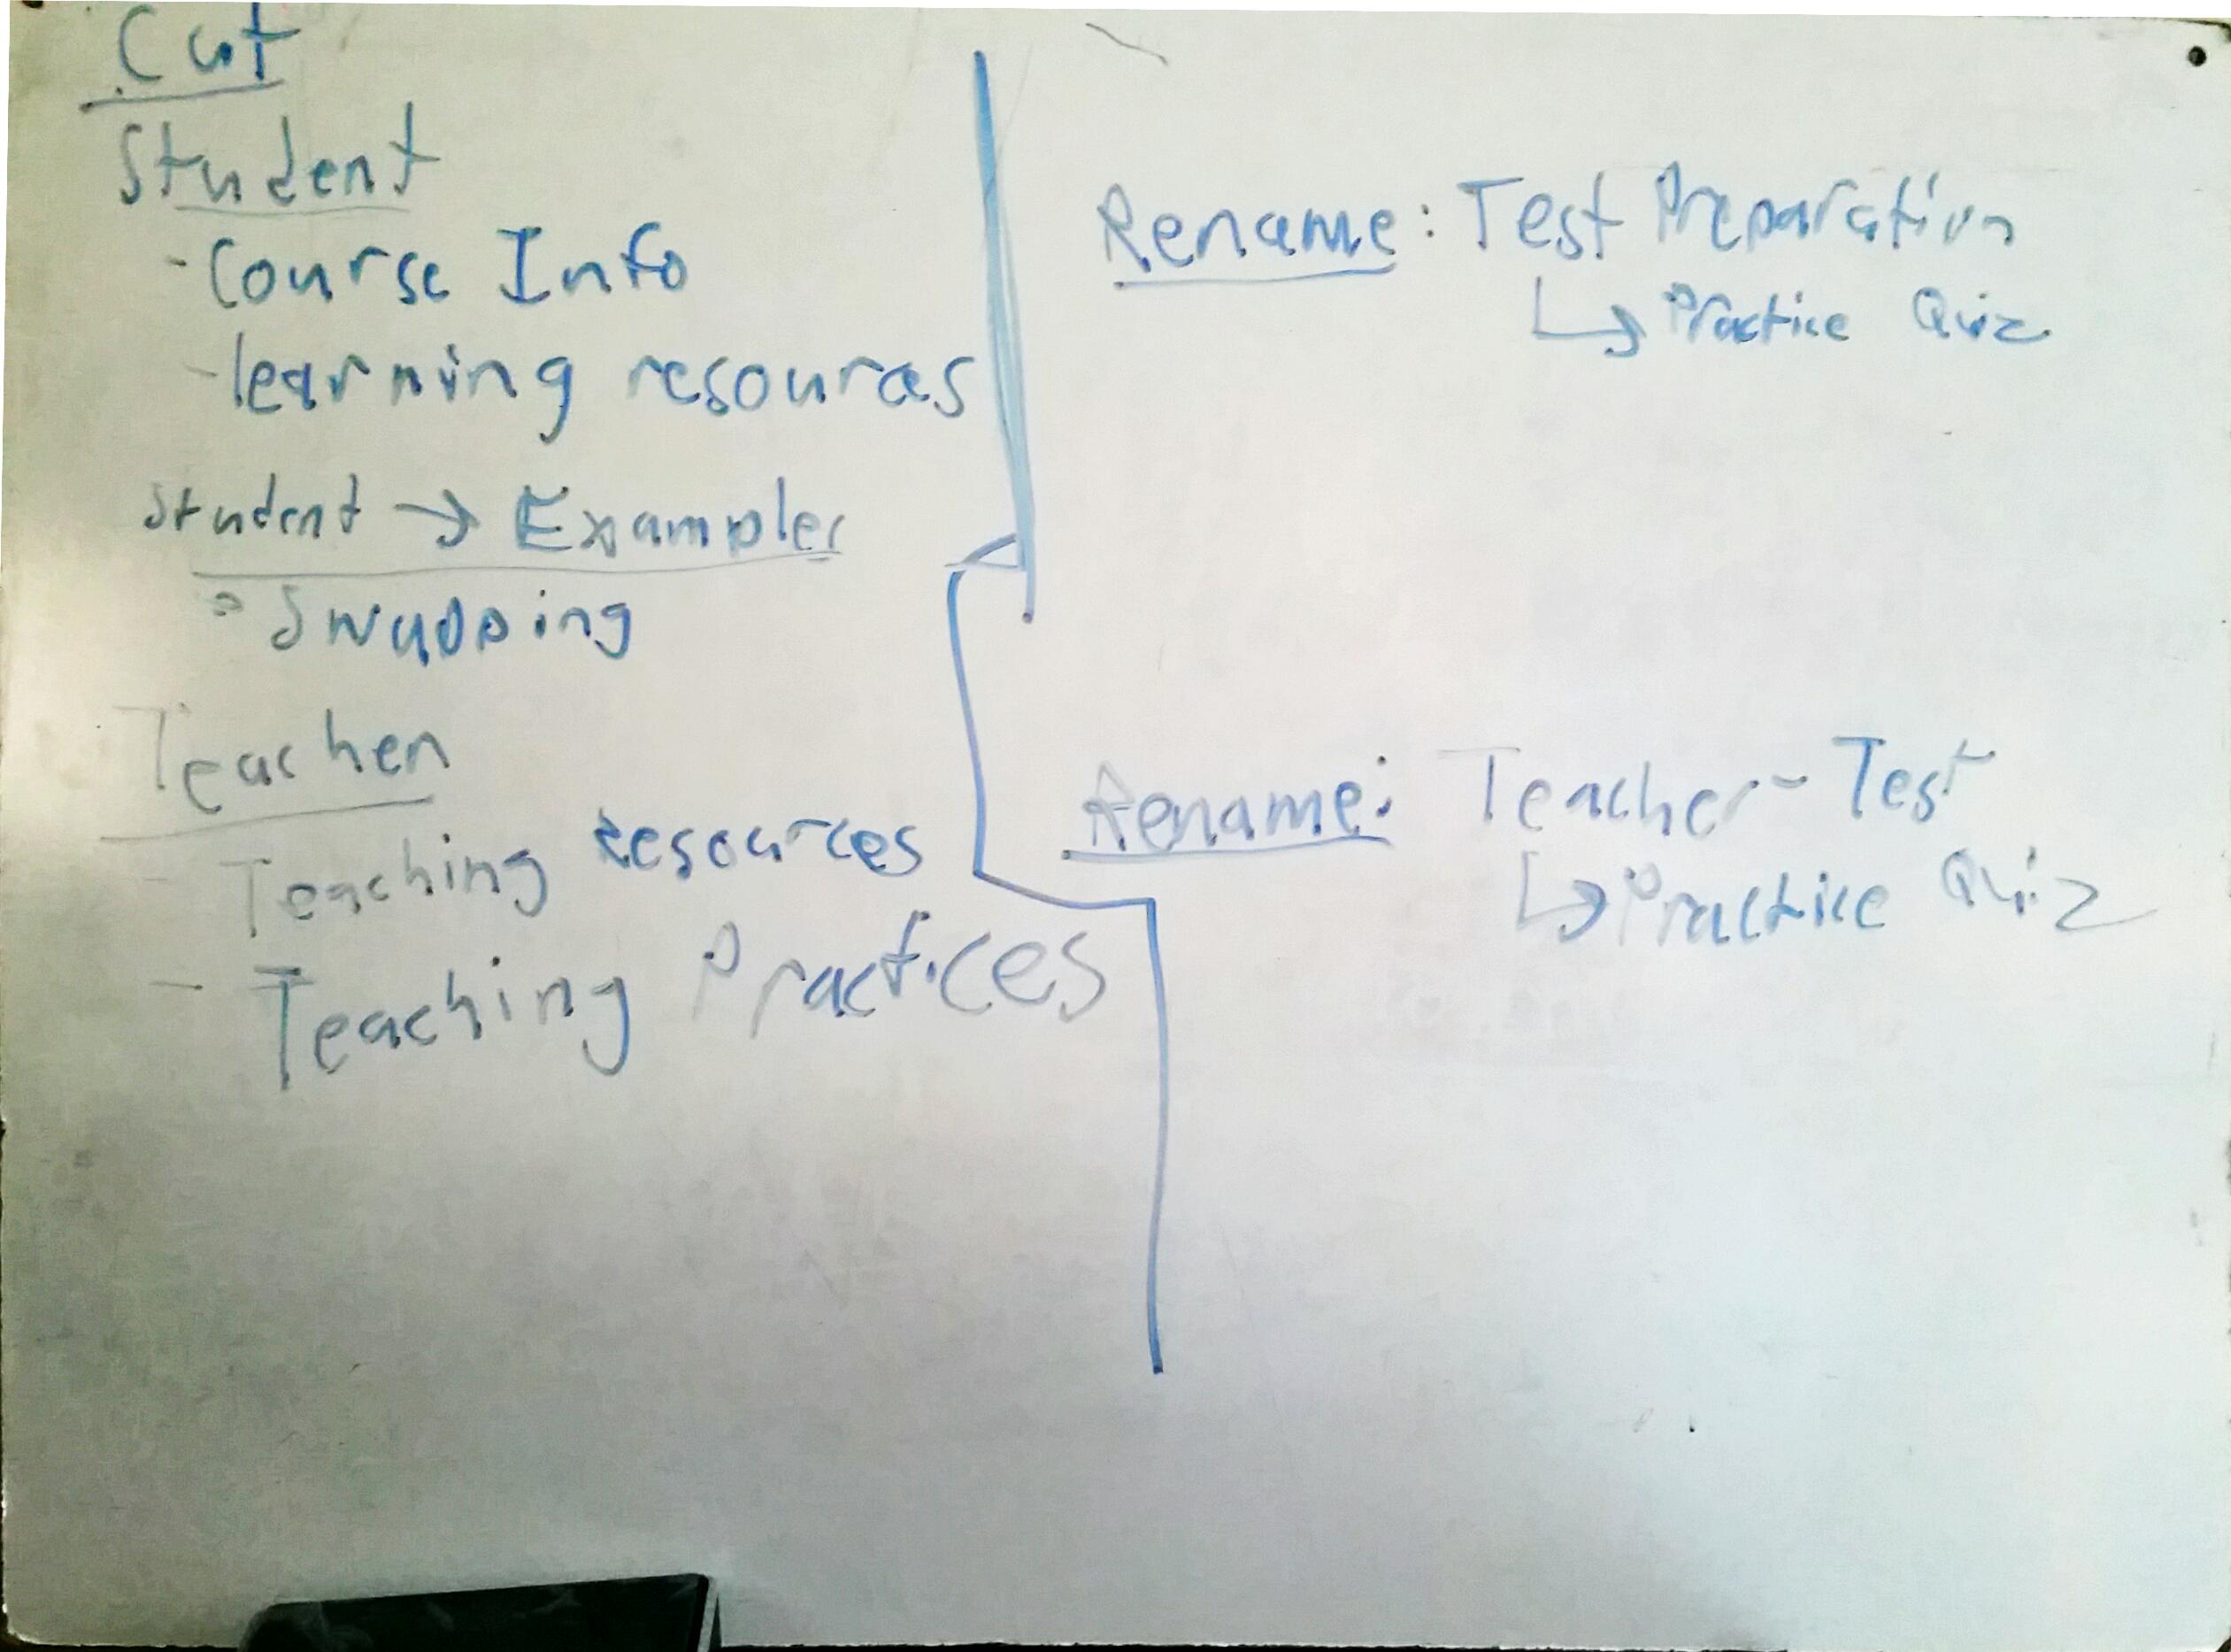 Cut
Student
- Course Info
- learning resources
Student → Examples
Swapping
Teacher
- Teaching Resources
- Teaching Practices
Rename: Test Preparation
↳ Practice Quiz
Rename: Teacher - Test
↳ Practice Quiz